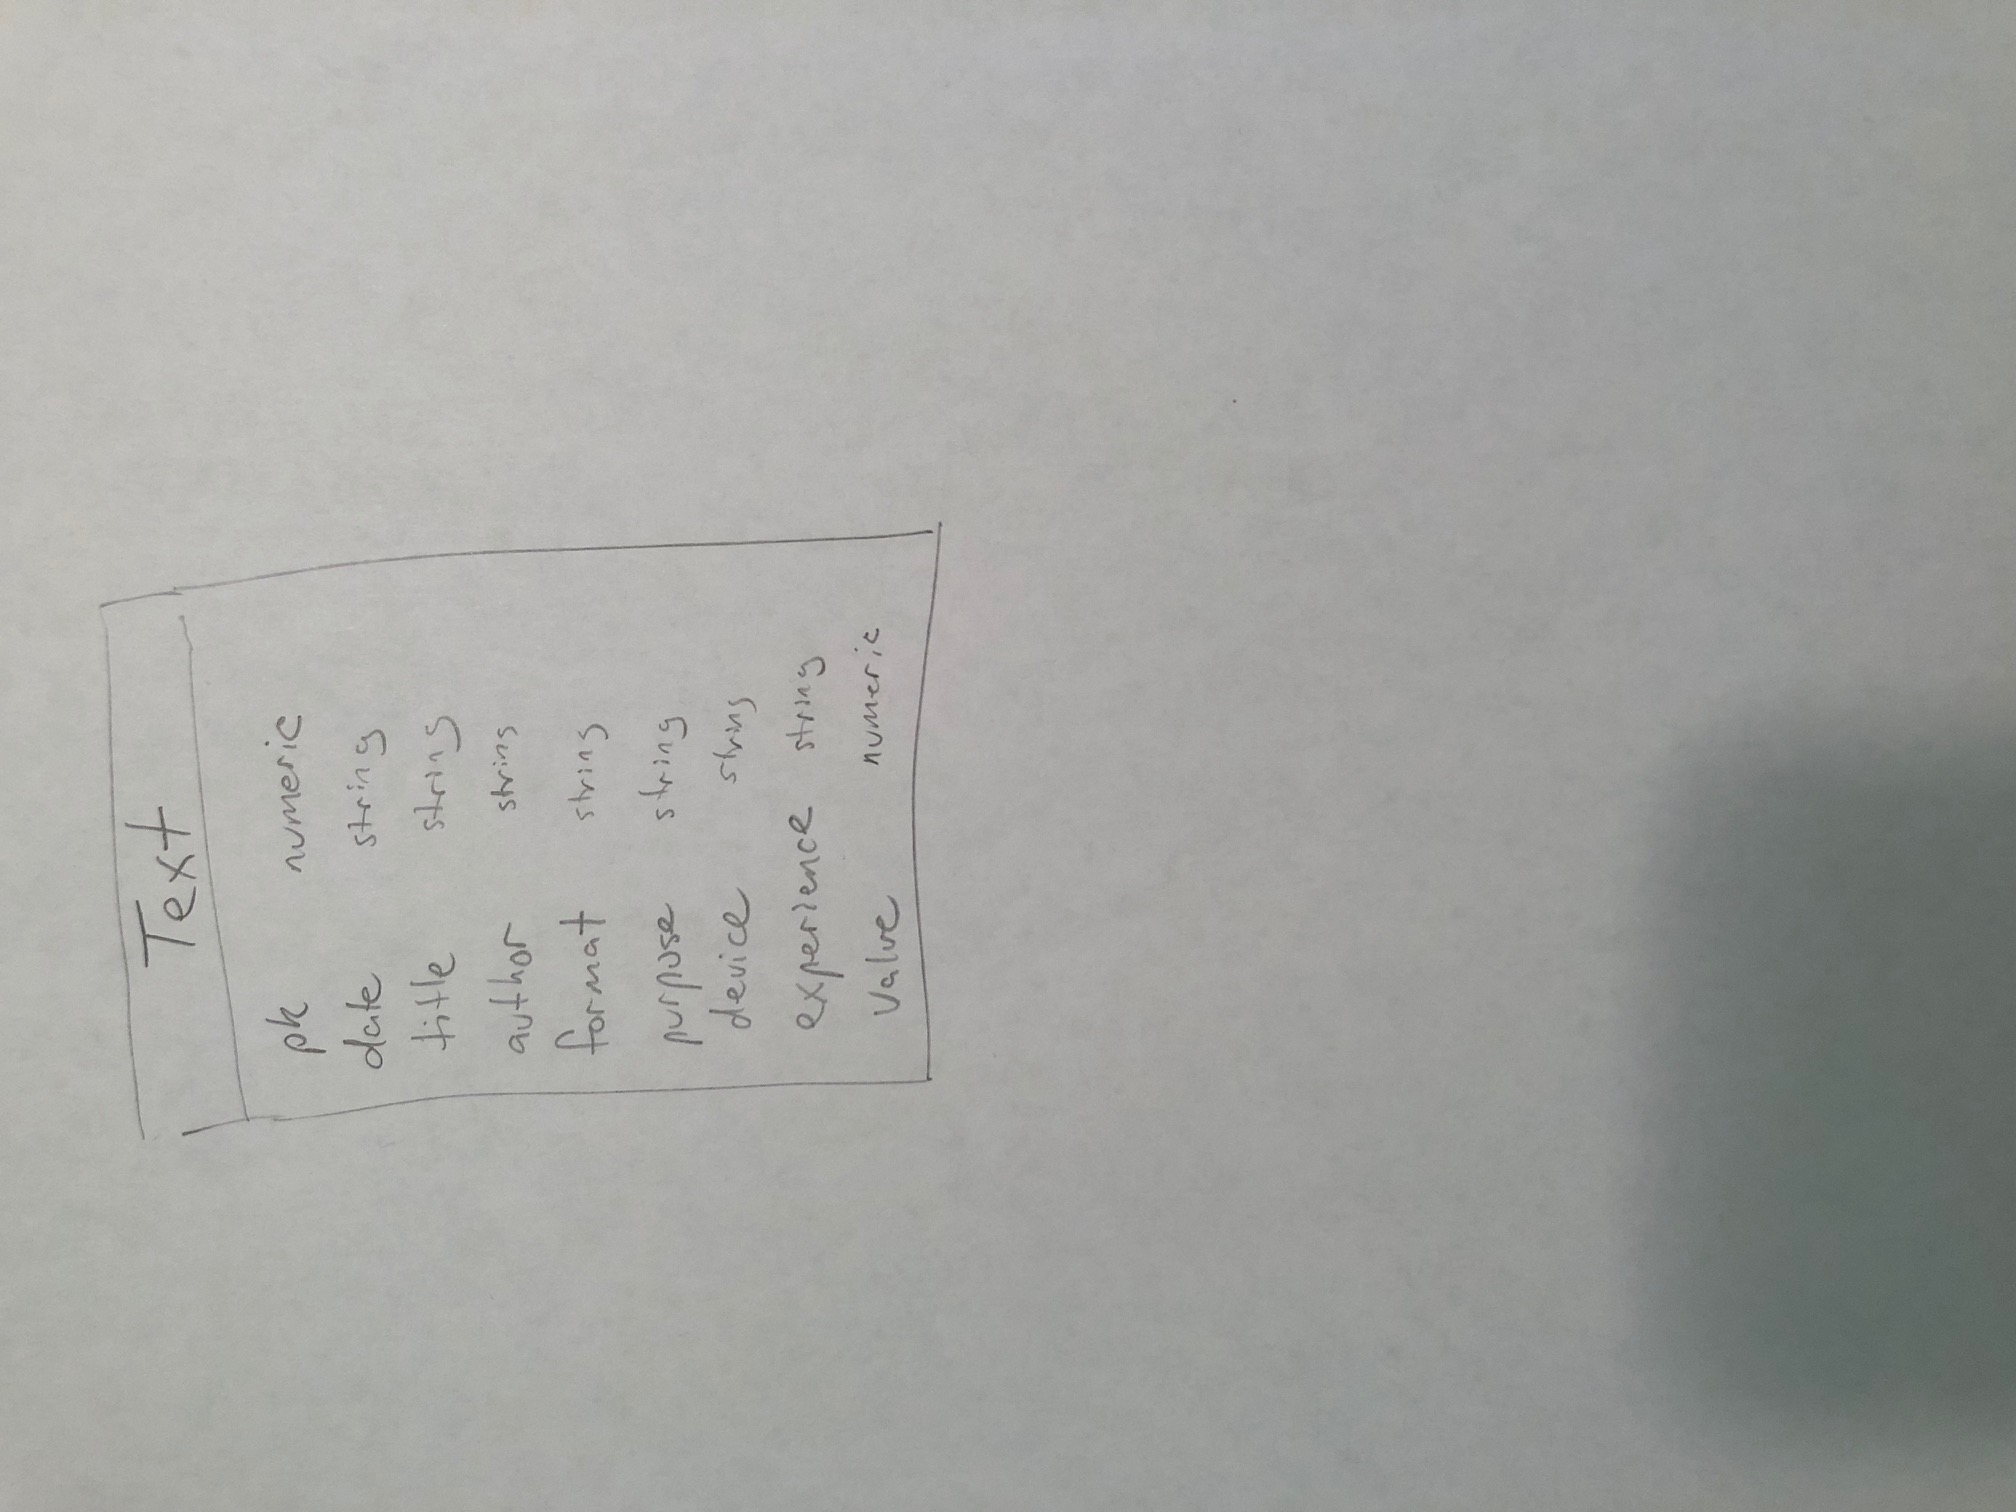 Text
pk numeric
date string
title string
author string
format string
purpose string
device string
experience string
value numeric